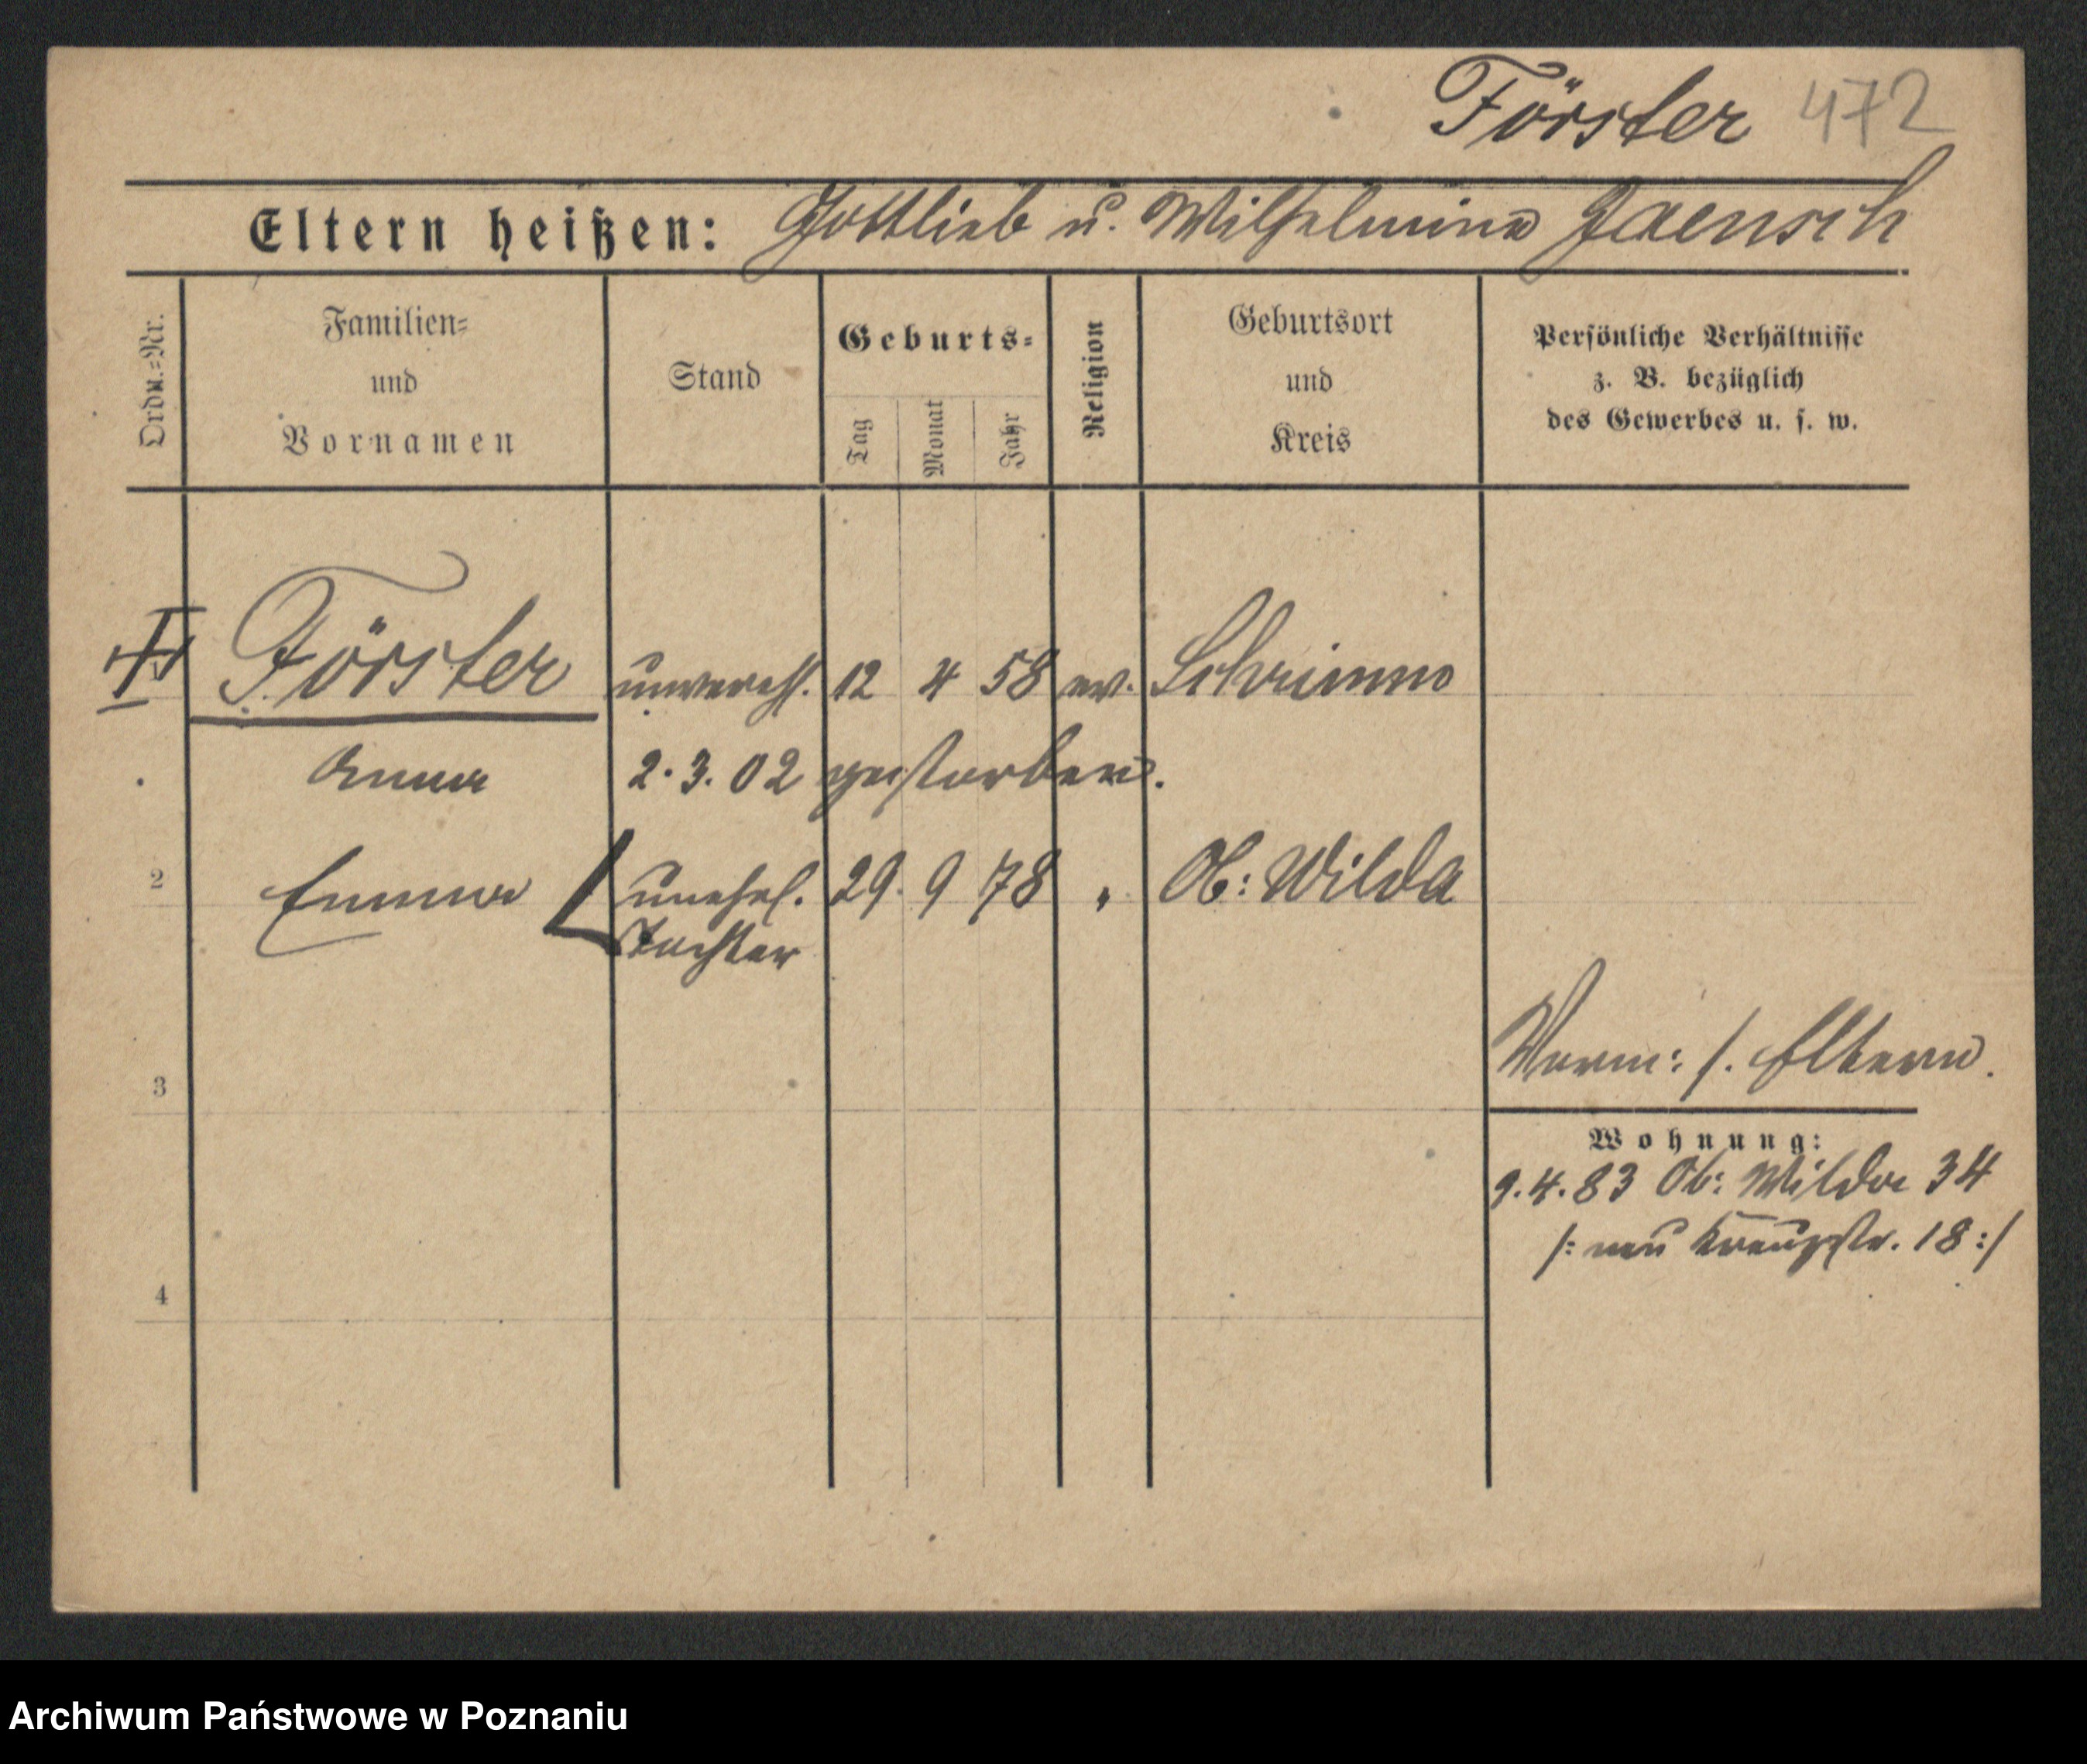 Förster 472
Eltern heißen: Gottlieb u. Wilhelmine Jaensch
Ordn.=Nr.
Familien=
und
Vornamen
Stand
Geburts=
Tag
Monat
Jahr
Religion
Geburtsort
und
Kreis
Persönliche Verhältnisse
z. B. bezüglich
des Gewerbes u. s. w.
Förster unvereh. 12 4 58 ev. Schrimm
Anna 2.3.02 gestorben.
2 Emma unehel. 29. 9 78 " Ob: Wilda
Tochter
3
Verm: s. Eltern.
Wohnung:
9.4.83 Ob: Wilda 34
/: neu Kreuzstr. 18 :/
4
Archiwum Państwowe w Poznaniu